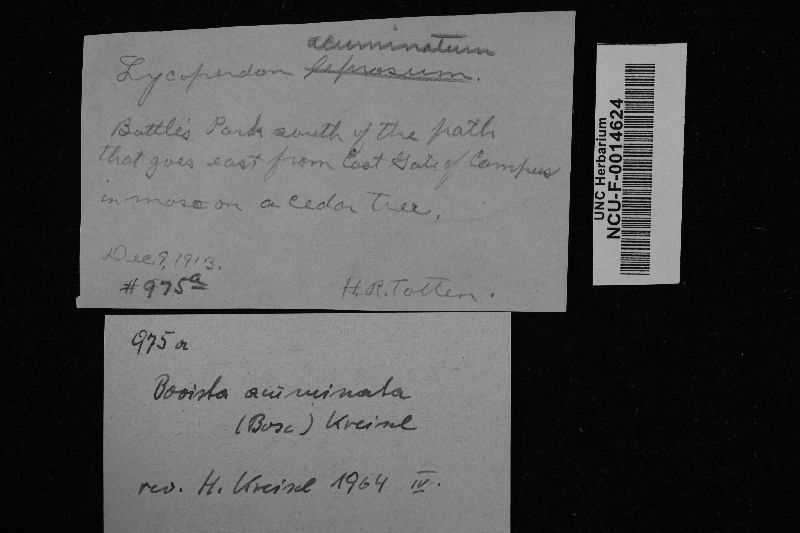 acuminatum
Lycoperdon leprosum.
Battle's Park south of the path
that goes east from East Gate of Campus
in moss on a cedar tree.
Dec 9, 1913.
#975a
H.R. Totten.
UNC Herbarium
NCU-F-0014624
975a
Bovista acuminata
(Bosc) Kreisel
rev. H. Kreisel 1964 IV.